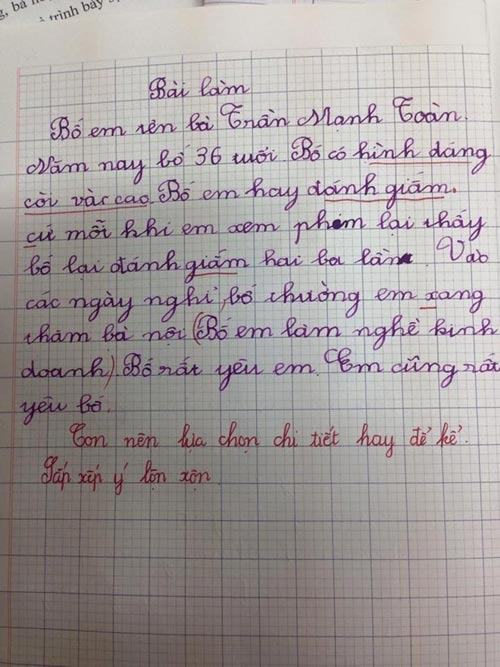 trình bày
Bài làm
Bố em tên là Trần Mạnh Toàn.
Năm nay bố 36 tuổi. Bố có hình dáng
còi vàc cao. Bố em hay đánh giấm.
cứ mỗi khi em xem phim lại thấy
bố lại đánh giấm hai ba lần. Vào
các ngày nghỉ, bố thường em xang
thăm bà nội (Bố em làm nghề kinh
doanh). Bố rất yêu em. Em cũng rất
yêu bố.
Con nên lựa chọn chi tiết hay để kể.
Sắp xếp ý lộn xộn.